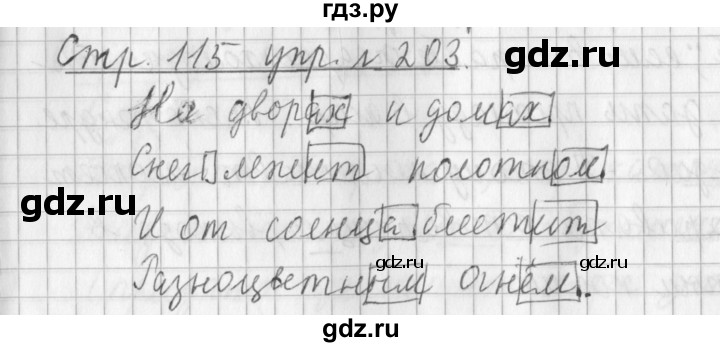 гдз.ру
Стр. 115 упр. № 203.
На дворах и домах
Снег лежит полотном
И от солнца блестит
Разноцветным огнём.
gdz.ru
gdz.ru
gdz.ru
gdz.ru